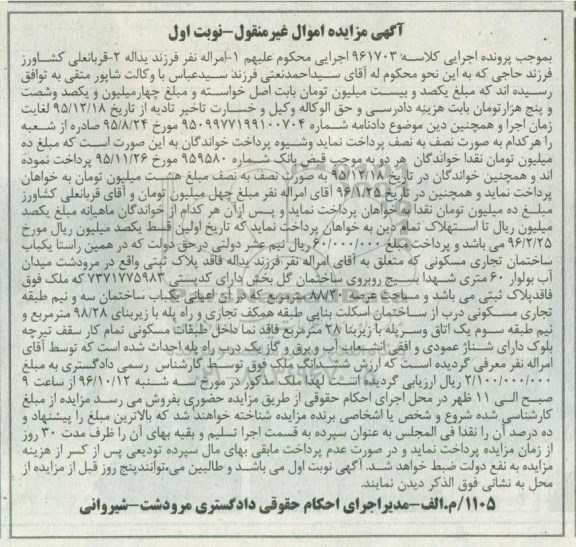 آگهی مزایده اموال غیرمنقول-نوبت اول
بموجب پرونده اجرایی کلاسه: ۹۶۱۷۰۳ اجرایی محکوم علیهم ۱-امراله نفر فرزند یداله ۲-قربانعلی کشاورز
فرزند حاجی که به این نحو محکوم له آقای سیداحمدنعتی فرزند سیدعباس با وکالت شاپور متقی به توافق
رسیده اند که مبلغ یکصد و بیست میلیون تومان بابت اصل خواسته و مبلغ چهارمیلیون و یکصد وشصت
و پنج هزارتومان بابت هزینه دادرسی و حق الوکاله وکیل و خسارت تاخیر تادیه از تاریخ ۹۵/۱۲/۱۸ لغایت
زمان اجرا و همچنین دین موضوع دادنامه شماره ۹۵۰۹۹۷۷۱۹۹۱۰۰۷۰۴ مورخ ۹۵/۸/۲۴ صادره از شعبه
را هرکدام به صورت نصف به نصف پرداخت نماید وشیوه پرداخت خواندگان به این صورت است که مبلغ ده
میلیون تومان نقدا خواندگان هر دو به موجب قبض بانک شماره ۹۵۹۵۸۰ مورخ ۹۵/۱۱/۲۶ پرداخت نموده
اند و همچنین خواندگان در تاریخ ۹۵/۱۲/۱۸ به صورت نصف به نصف مبلغ هشت میلیون تومان به خواهان
پرداخت نماید و همچنین در تاریخ ۹۶/۱/۲۵ آقای امراله نفر مبلغ چهل میلیون تومان و آقای قربانعلی کشاورز
مبلغ ده میلیون تومان نقدا به خواهان پرداخت نماید و پس ازآن هر کدام از خواندگان ماهیانه مبلغ یکصد
میلیون ریال تا استهلاک تمام دین به خواهان پرداخت نماید که تاریخ اولین قسط یکصد میلیون ریال مورخ
۹۶/۲/۲۵ می باشد و پرداخت مبلغ ۶۰/۰۰۰/۰۰۰ ریال نیم عشر دولتی درحق دولت که در همین راستا یکباب
ساختمان تجاری مسکونی که متعلق به آقای امراله نفر فرزند یداله فاقد پلاک ثبتی واقع در مرودشت میدان
آب بولوار ۶۰ متری شهدا بسیج روبروی ساختمان گل بخش دارای کدپستی ۷۳۷۱۷۷۵۹۸۳ که ملک فوق
فاقدپلاک ثبتی می باشد و مساحت عرصه ۸۸۷۴۰ مترمربع که دارای اعیانی یکباب ساختمان سه و نیم طبقه
تجاری مسکونی درب از ساختمان اسکلت بنایی طبقه همکف تجاری و راه پله با زیربنای ۹۸/۲۸ مترمربع و
نیم طبقه سوم یک اتاق وسرپله با زیربنا ۲۸ مترمربع فاقد نما داخل طبقات مسکونی تمام کار سقف تیرچه
بلوک دارای شناژ عمودی و افقی انشعابات آب و برق و گاز یک درب راه پله احداث شده است که توسط آقای
امراله نفر معرفی گردیده است که ارزش ششدانگ ملک فوق توسط کارشناس رسمی دادگستری به مبلغ
۲/۱۰۰/۰۰۰/۰۰۰ ریال ارزیابی گردیده است لهذا ملک مذکور در مورخ سه شنبه ۹۶/۱۰/۱۲ از ساعت ۹
صبح الی ۱۱ ظهر در محل اجرای احکام حقوقی از طریق مزایده حضوری بفروش می رسد مزایده از مبلغ
کارشناسی شده شروع و شخص یا اشخاصی برنده مزایده شناخته خواهند شد که بالاترین مبلغ را پیشنهاد و
ده درصد آن را نقدا فی المجلس به عنوان سپرده به قسمت اجرا تسلیم و بقیه بهای آن را ظرف مدت ۳۰ روز
از زمان مزایده پرداخت نماید و در صورت عدم پرداخت مابقی بهای مال سپرده تودیعی پس از کسر از هزینه
مزایده به نفع دولت ضبط خواهد شد. آگهی نوبت اول می باشد و طالبین می‌توانندپنج روز قبل از مزایده از
محل به نشانی فوق الذکر دیدن نمایند.
۱۱۰۵/م.الف-مدیراجرای احکام حقوقی دادگستری مرودشت-شیروانی